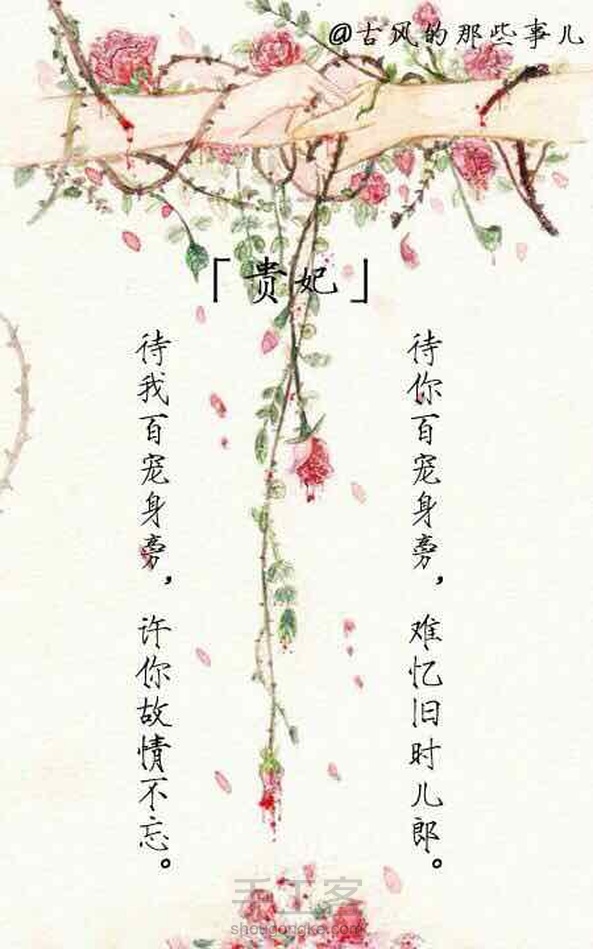 @古风的那些事儿
「贵妃」
待你百宠身旁，难忆旧时儿郎。
待我百宠身旁，许你故情不忘。
手工客
shougongke.com